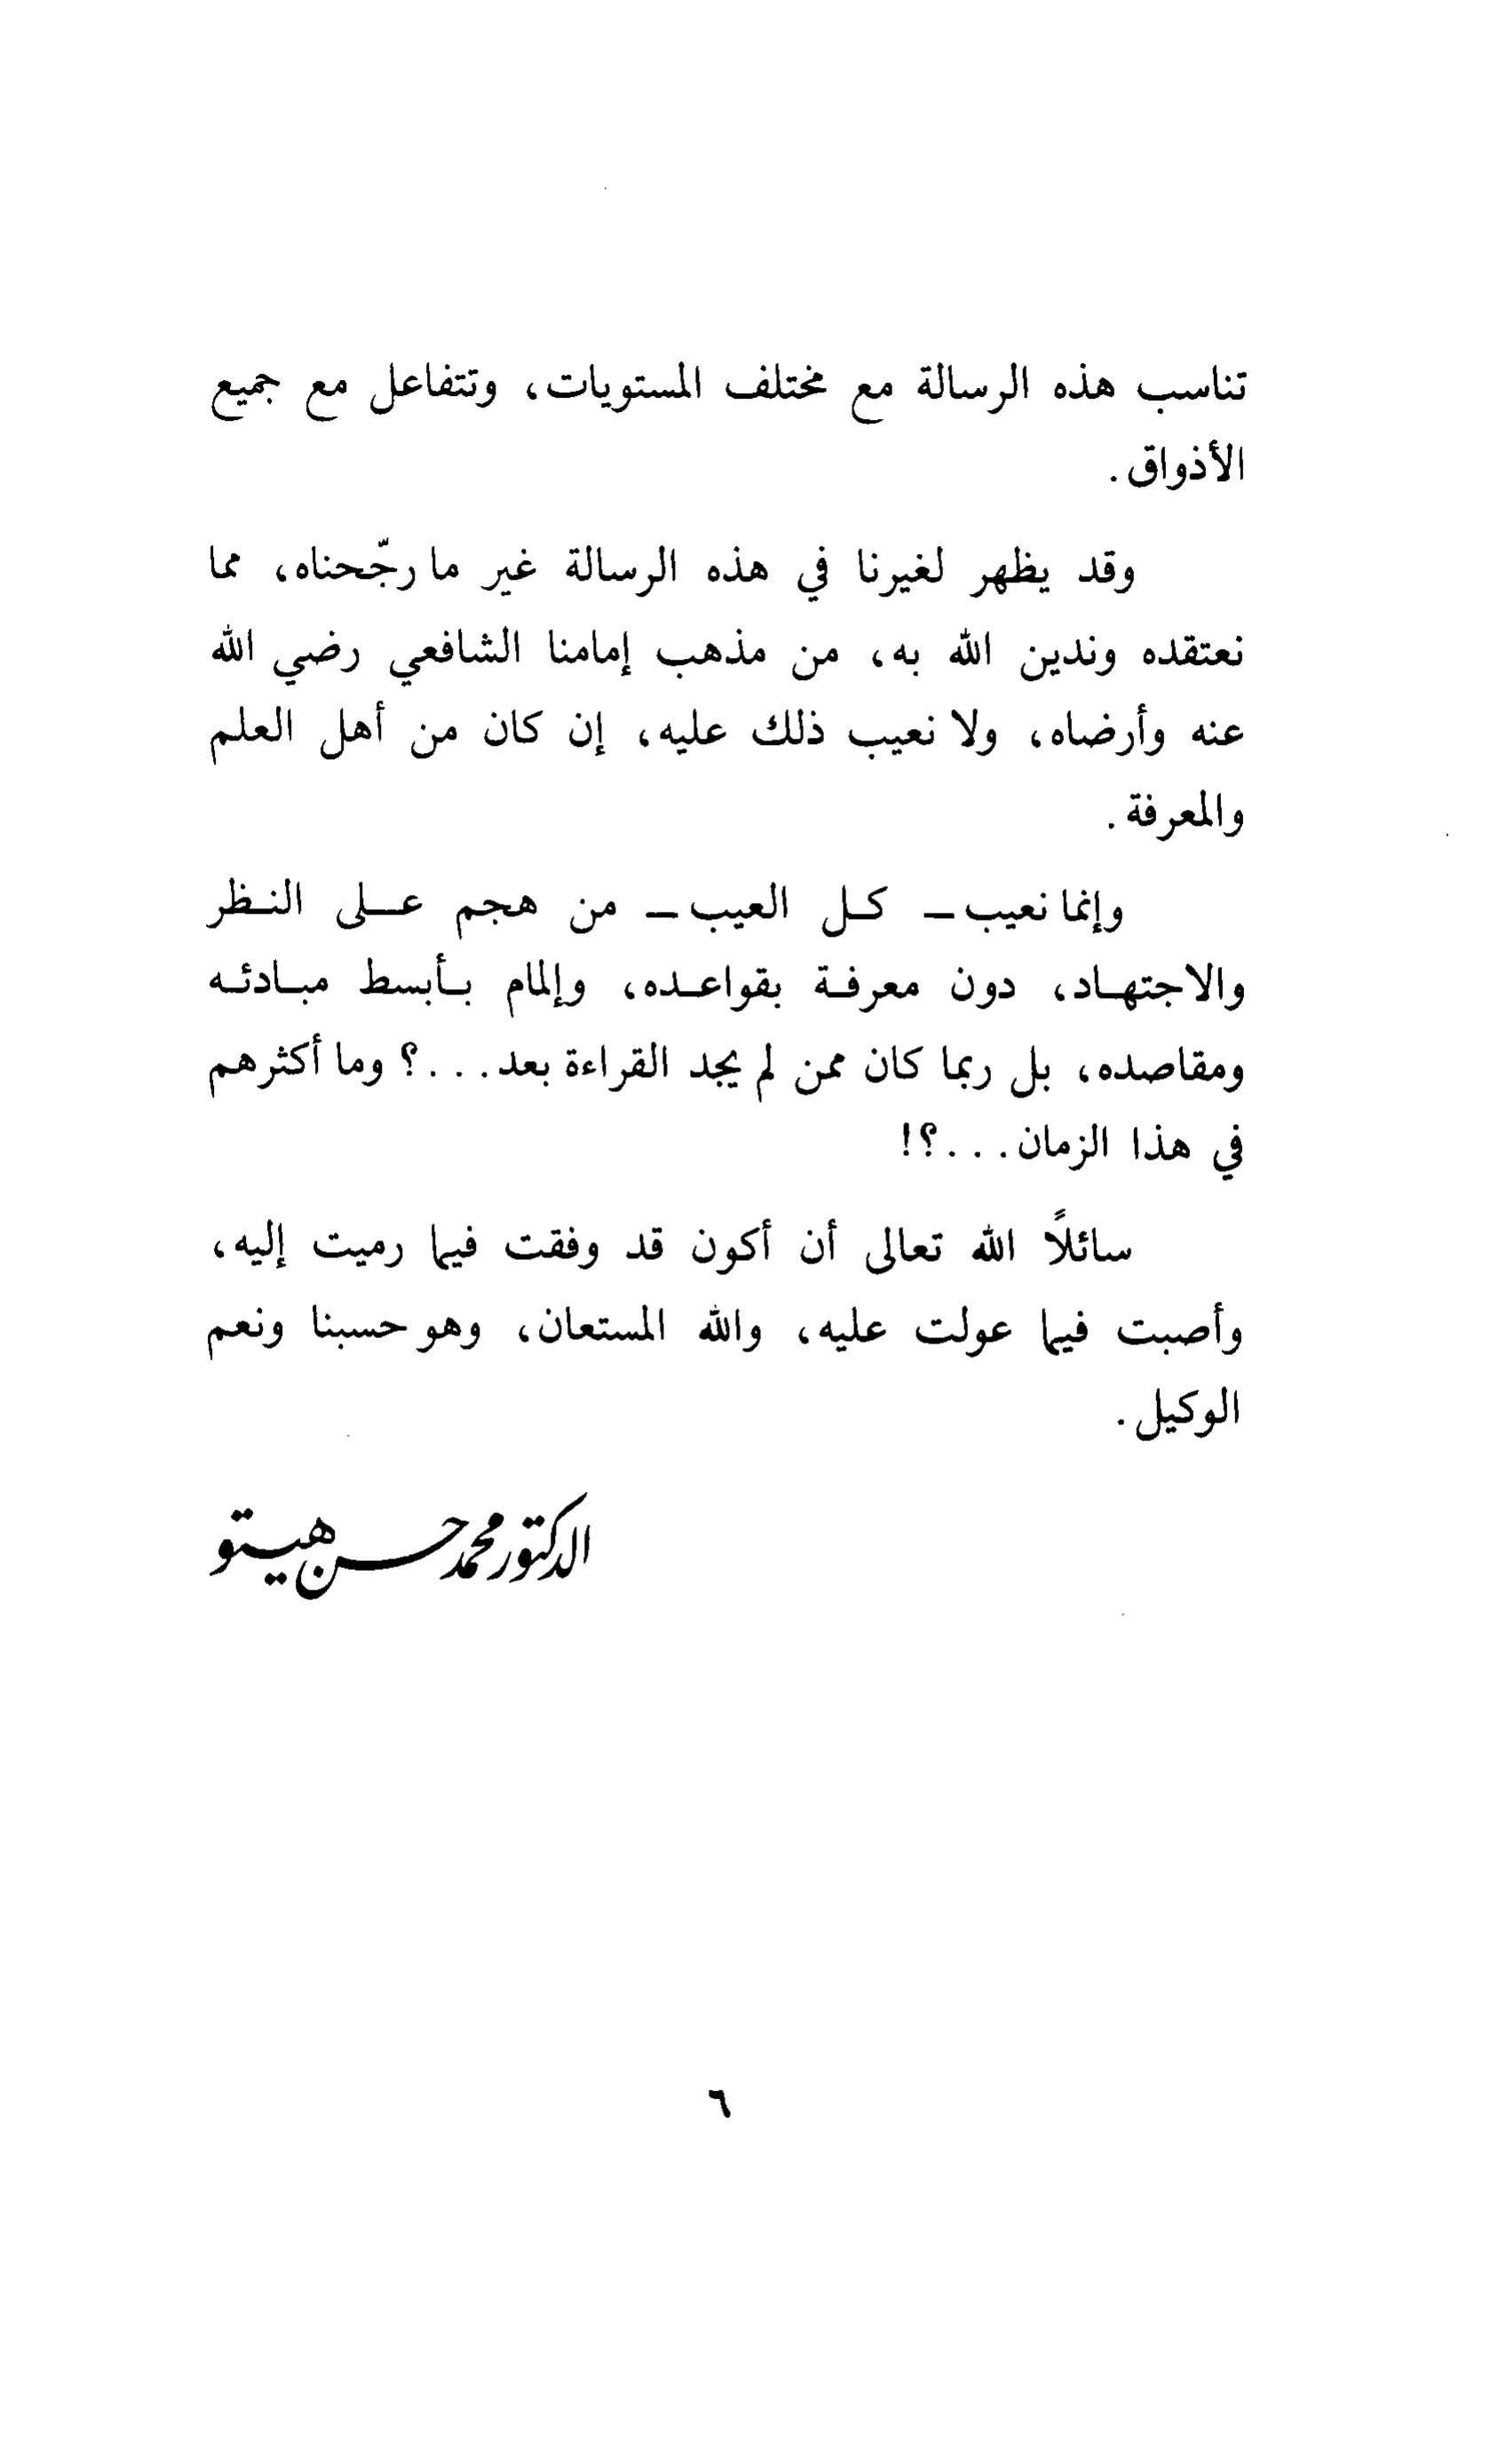 تناسب هذه الرسالة مع مختلف المستويات، وتتفاعل مع جميع
الأذواق.
وقد يظهر لغيرنا في هذه الرسالة غير ما رجّحناه، مما
نعتقده وندين الله به، من مذهب إمامنا الشافعي رضي الله
عنه وأرضاه، ولا نعيب ذلك عليه، إن كان من أهل العلم
والمعرفة.
وإنما نعيب ـ كـل العيب ـ من هجم عـلى النـظر
والاجتهـاد، دون معرفـة بقواعـده، وإلمام بـأبسط مبـادئـه
ومقاصده، بل ربما كان ممن لم يجد القراءة بعد...؟ وما أكثرهم
في هذا الزمان...؟!
سائلاً الله تعالى أن أكون قد وفقت فيما رميت إليه،
وأصبت فيما عولت عليه، والله المستعان، وهو حسبنا ونعم
الوكيل.
الدكتور محمد حسن هيتو
٦